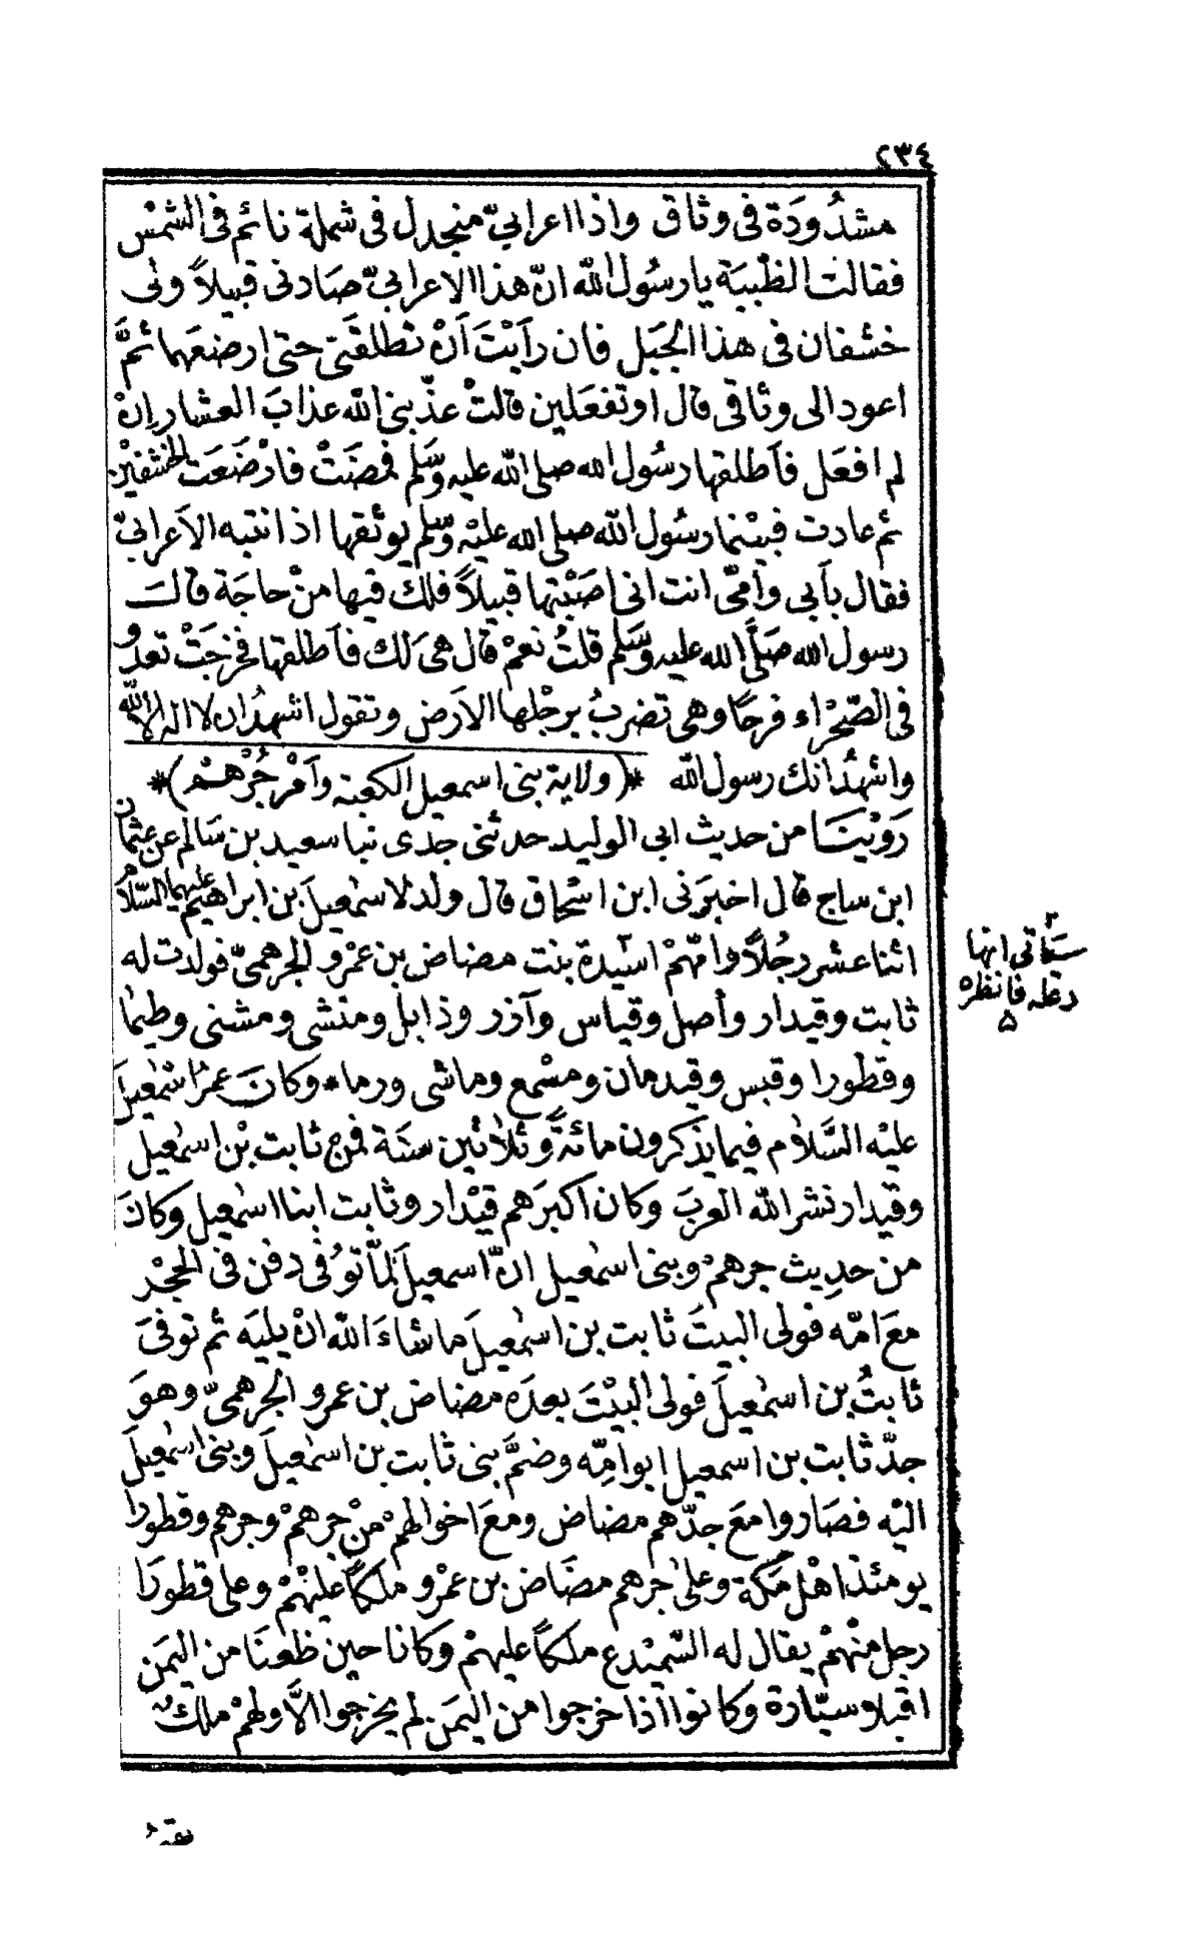 ٢٣٤
مشدُودَة فى وثاق واذا اعرابيّ منجدل فى شملة نائم فى الشمْس
فقالت الظّبيَة يا رسُول الله انّ هذا الاعرابيّ صَادنى قبيلاً ولى
خشفان فى هذا الجَبَل فان رَأيْتَ اَنْ تطلقَنى حتى ارضعَهما ثمَّ
اعود الى وثاقى قال اوتفعَلين قالتْ عذّبنى الله عذابَ العشار اِنْ
لم افعَل فاَطلقها رسُول الله صلى الله عليه وسَّلم فمضَتْ فارْضَعَت الخشفيْن
ثم عادت فبيْنما رسُول الله صلى الله عليْه وسّلم يوثقها اذ انتبه الاَعرابيّ
فقال بأبي وأمّى انت انى اصَبْتها قبيلاً فلك فيها منْ حاجَة قالـــ
رسول الله صَلَّى الله عليه وسَّلم قلتُ نعمْ قال هىَ لك فاَطلقها فخرجَتْ تعدُو
فى الصّحْراء فرحًا وهى تضربُ برجْلها الاَرض وتقول اشهدُ ان لا اله الا الله
واشهدُ انك رسول الله *(ولاية بنى اسمعيل الكعبة وَاَمْر جُرْهُمْ)*
رَوَيْنَا من حديث ابى الوليد حدثنى جدى نبا سعيد بن سَالم عن عثمان
ابن ساج قال اخبَرَنى ابن اسْحاق قال ولد لاسمٰعيلَ بن ابراهيم عليهما السّلامُ
اثنا عشر رجُلاً وامّهمْ اسَيّدة بنت مضاض بن عمْرو الجرهمىّ فولدت له
ثابت وقيدار وأصل وقياس وآذر وذابل ومنشى ومشنى وطيما
وقطورا وقبس وقيدمان ومسْمع وماشى ورماء وكانَ عمرُ اسْمٰعيلَ
عليْه السَّلاٰم فيما يذكرون مائةً وَثلاٰثين سنَة فمن ثابت بْن اسمٰعيل
وقيدار نشر الله العربَ وكان اكبرَهم قيْدار وثابت ابنا اسْمٰعيل وكانَ
من حدِيث جرهمْ وبنى اسْمٰعيل انّ اسمعيلَ لمّا توُفى دفن فى الحجْر
معَ امّه فولى البيتَ ثابت بن اسمٰعيلَ ما شاءَ الله انْ يليَه ثم توفىَ
ثابتُ بن اسمٰعيلَ فولى البيْتَ بعدَه مضاض بن عمرو الجرهمىّ وهوَ
جدّ ثابت بن اسمعيل ابو امِّه وضمَّ بنى ثابت بن اسمٰعيلَ وبنى اسمٰعيلَ
اليْه فصَاروا معَ جدّهم مضاض ومعَ اخوالهمْ منْ جرهمْ وجرهم وقطورا
يومئذ اهْل مَكّة وعلى جرهم مضَاض بن عمْرو ملكاً عليْهْم وعلى قطورَا
رجل منْهمْ يقال له السّميْدع ملكاً عليهمْ وكانا حين ظعَنَا من اليمَن
اقبلا وسيّارة وكانوا اذا خرجوا من اليمَن لم يخرجوا الاّ ولهمْ ملكٌ
سَتأتى انها
رعله فانظرْه